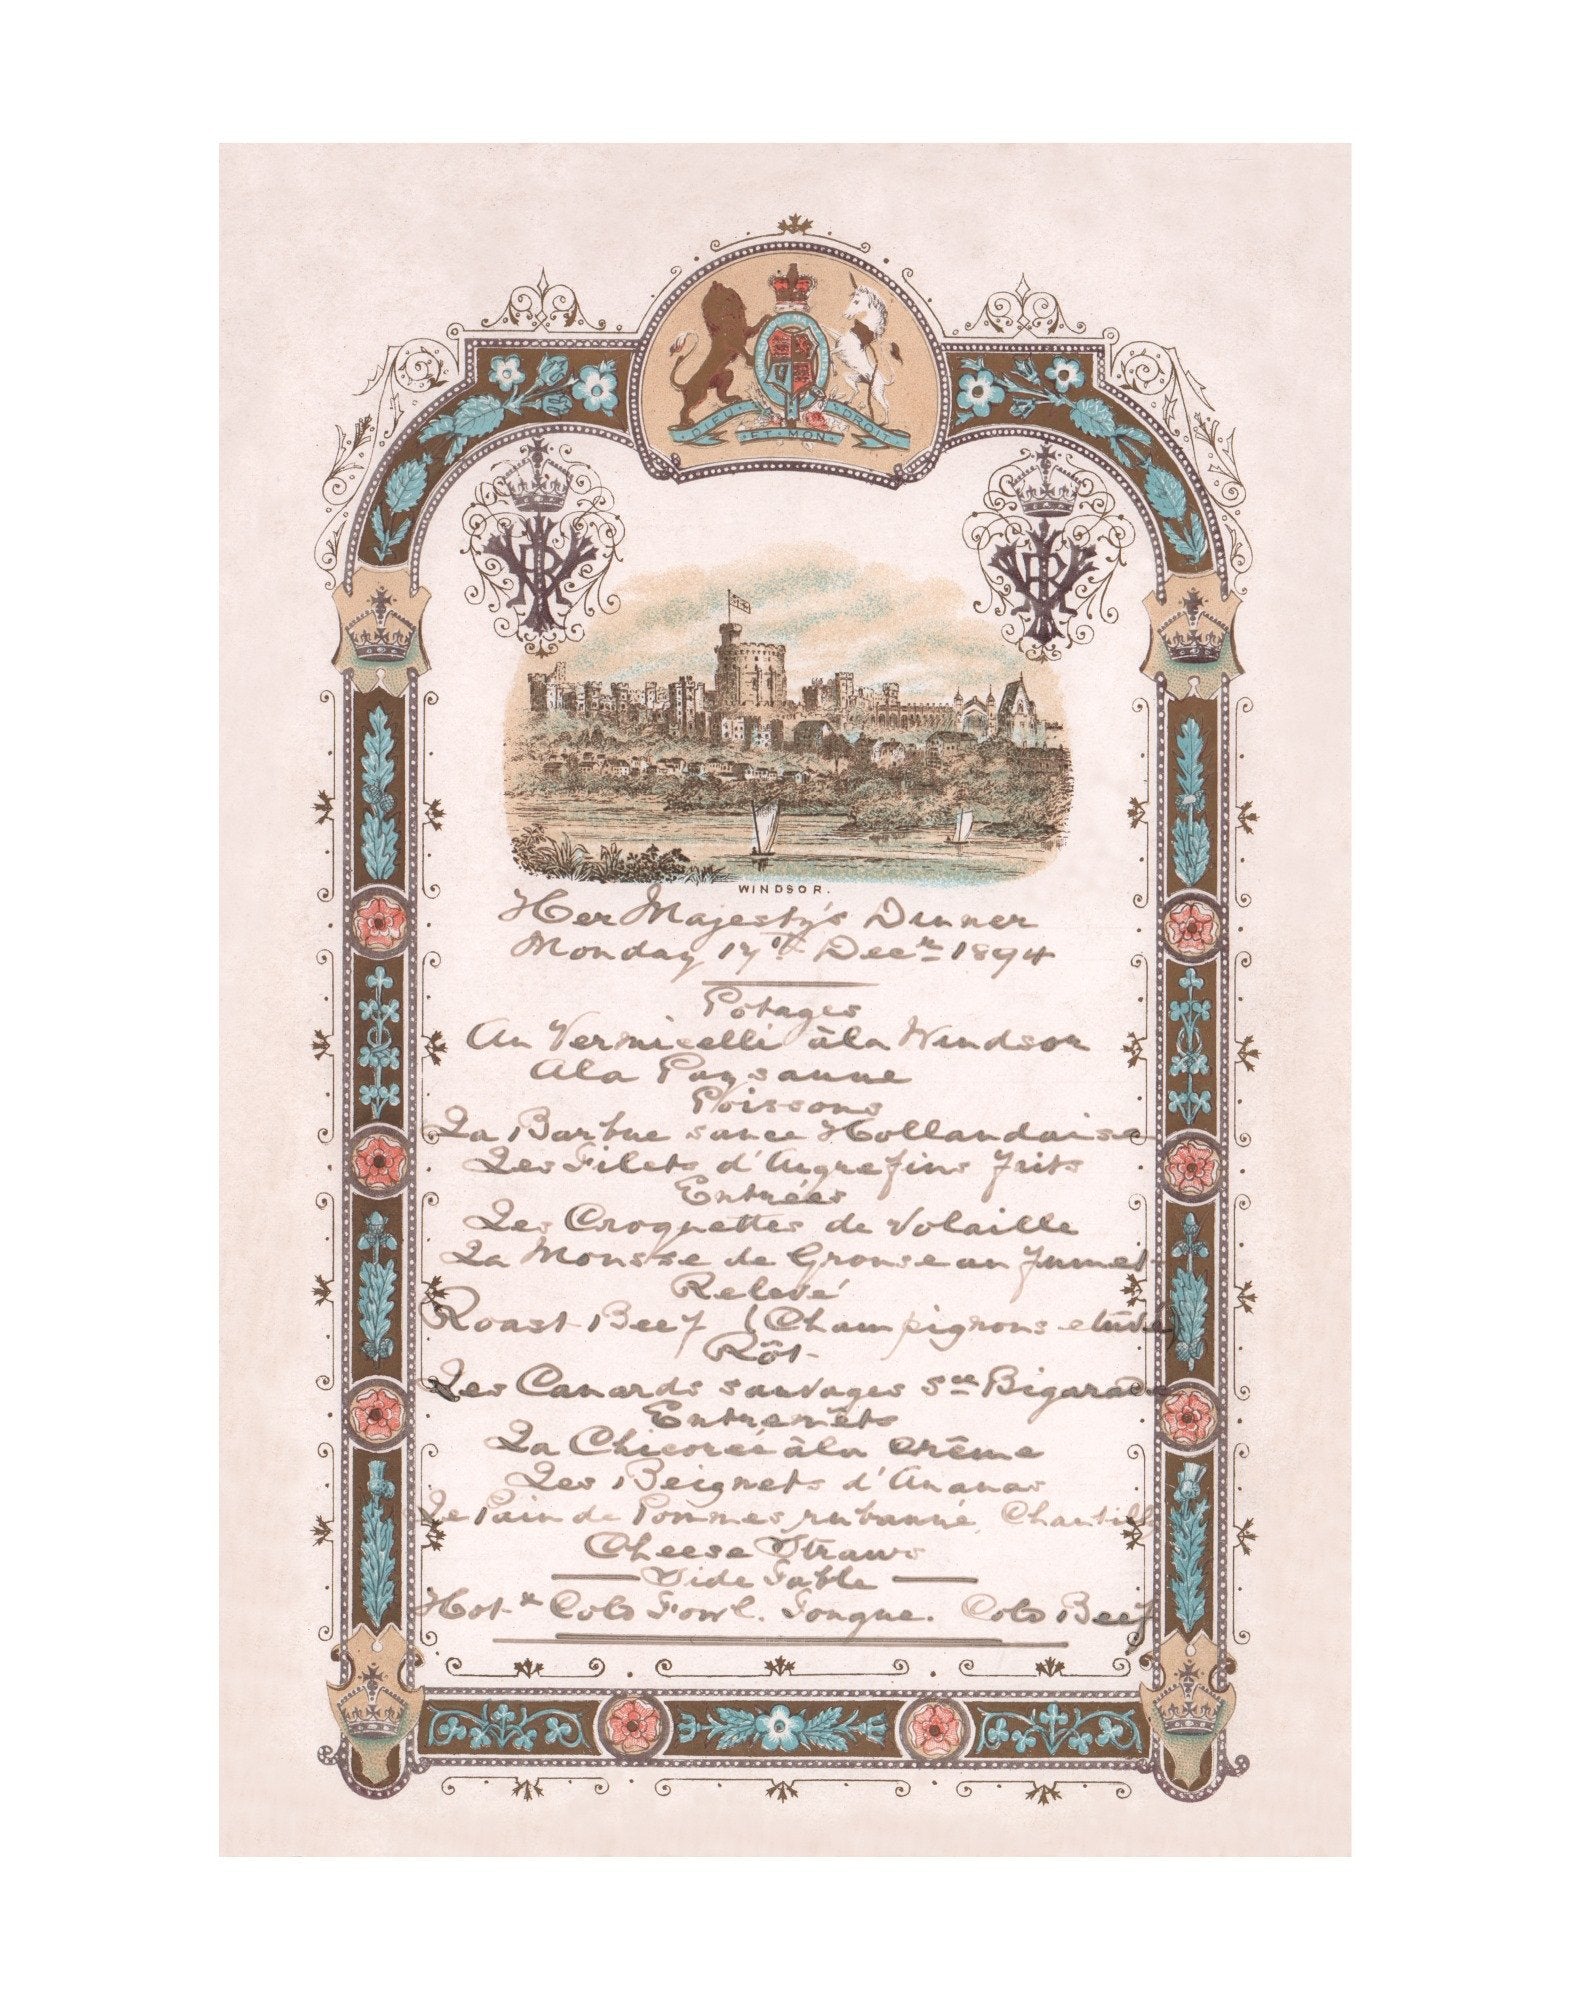 DIEU ET MON DROIT
WINDSOR.
Her Majesty's Dinner
Monday 17th Decr 1894
Potages
Au Vermicelli à la Windsor
A la Paysanne
Poissons
La Barbue sauce Hollandaise
Les Filets d'Aigrefins frits
Entrées
Les Croquettes de Volaille
La Mousse de Grouse au fumet
Relevé
Roast Beef (Champignons etuvés)
Rôt
Les Canards sauvages sce Bigarade
Entremêts
La Chicoreé à la Crême
Les Beignets d'Ananas
Le Pain de Pommes rubanné Chantilly
Cheese Straws
Side Table
Hot & Cold Fowl. Tongue. Cold Beef